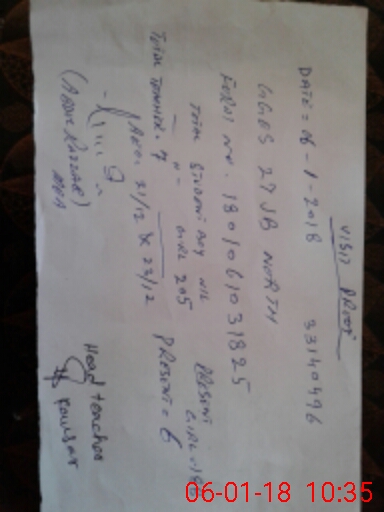 VISIT PROOF
DATE = 06-1-2018 33140496
GGPS 27 JB NORTH
FORM NO. 180106103 1825
TOTAL STUDENT BOY NIL PRESENT
" " GIRL 205 GIRL = 
TOTAL TEACHER. 7 PRESENT = 6
21/12 & 23/12
(ABDUL RAZZAQ)
Head teacher
Kausar
06-01-18 10:35